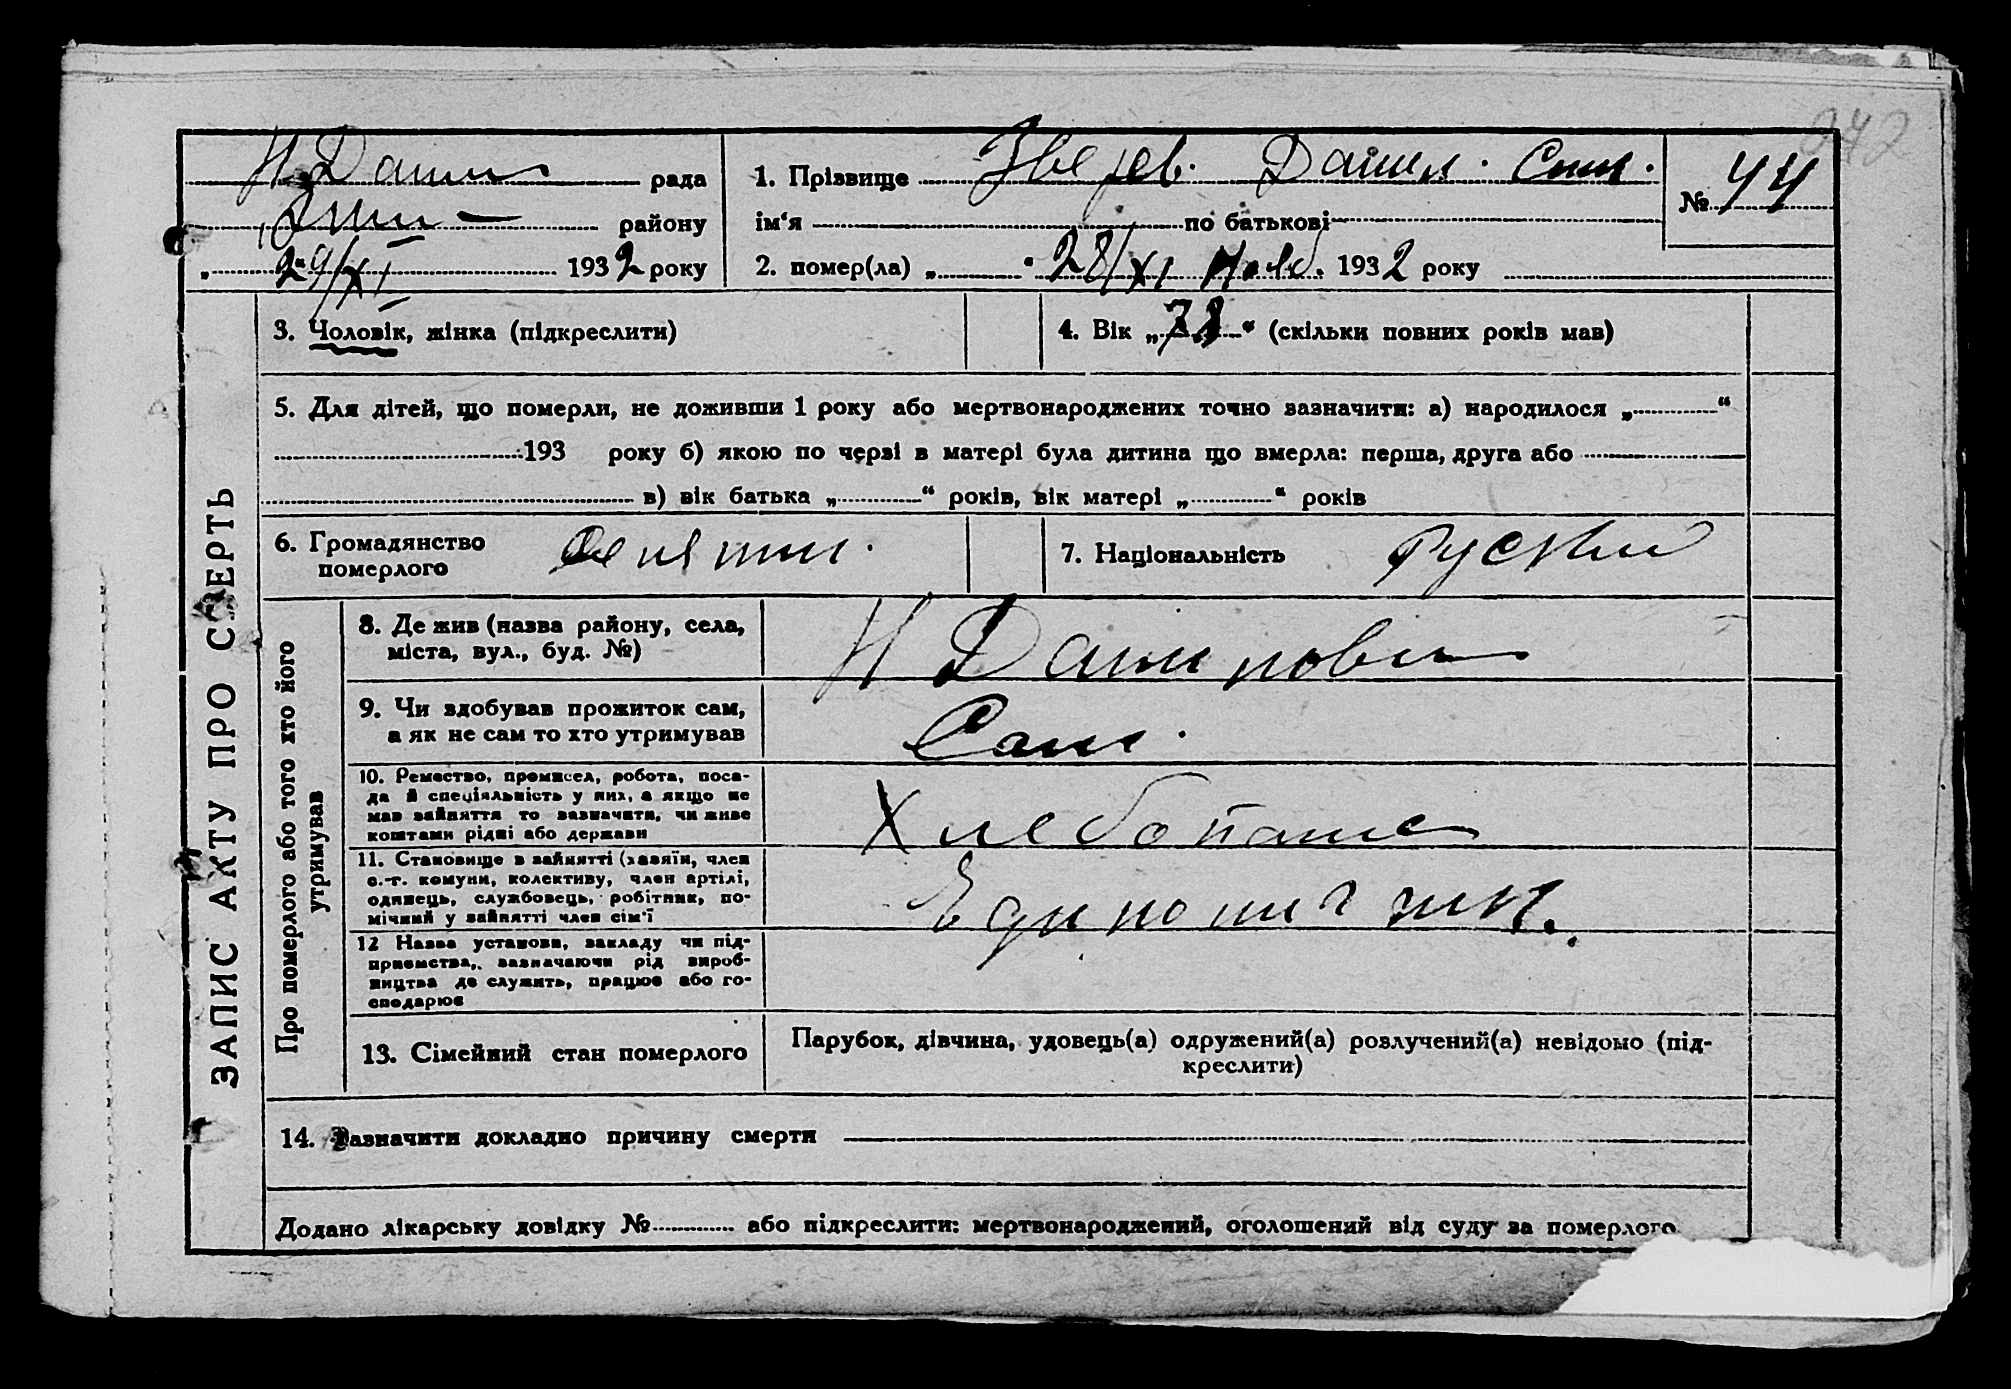 242
Н Данил рада
району
„ 29/XI 1932 року
1. Прізвище Зверев. Данил. Сим.
ім‘я по батькові
№ 44
2. помер(ла) „ “ 28/XI Нояб. 1932 року
ЗАПИС АКТУ ПРО СМЕРТЬ
3. Чоловік, жінка (підкреслити)
4. Вік „78“ (скільки повних років мав)
5. Для дітей, що померли, не доживши 1 року або мертвонароджених точно зазначити: а) народилося „ “
193 року б) якою по черзі в матері була дитина що вмерла: перша, друга або
в) вік батька „ “ років, вік матері „ “ років
6. Громадянство
померлого
7. Національність Руский
Про померлого або того хто його
утримував
8. Де жив (назва району, села,
міста, вул., буд. №)
Н Даниловка
9. Чи здобував прожиток сам,
а як не сам то хто утримував
Сам.
10. Ремество, промисел, робота, поса-
да й спеціяльність у них, а якщо не
мав зайняття то зазначити, чи живе
коштами рідні або держави
Хлебопаш
11. Становище в зайнятті (хазяїн, член
с.-г. комуни, колективу, член артілі,
одинець, службовець, робітник, по-
мічний у зайнятті член сім'ї
Единолич
12 Назва установи, закладу чи під-
приємства, зазначаючи рід вироб-
ництва де служить, працює або го-
сподарює
13. Сімейний стан померлого
Парубок, дівчина, удовець(а) одружений(а) розлучений(а) невідомо (під-
креслити)
14. Зазначити докладно причину смерти
Додано лікарську довідку № або підкреслити: мертвонароджений, оголошений від суду за померлого